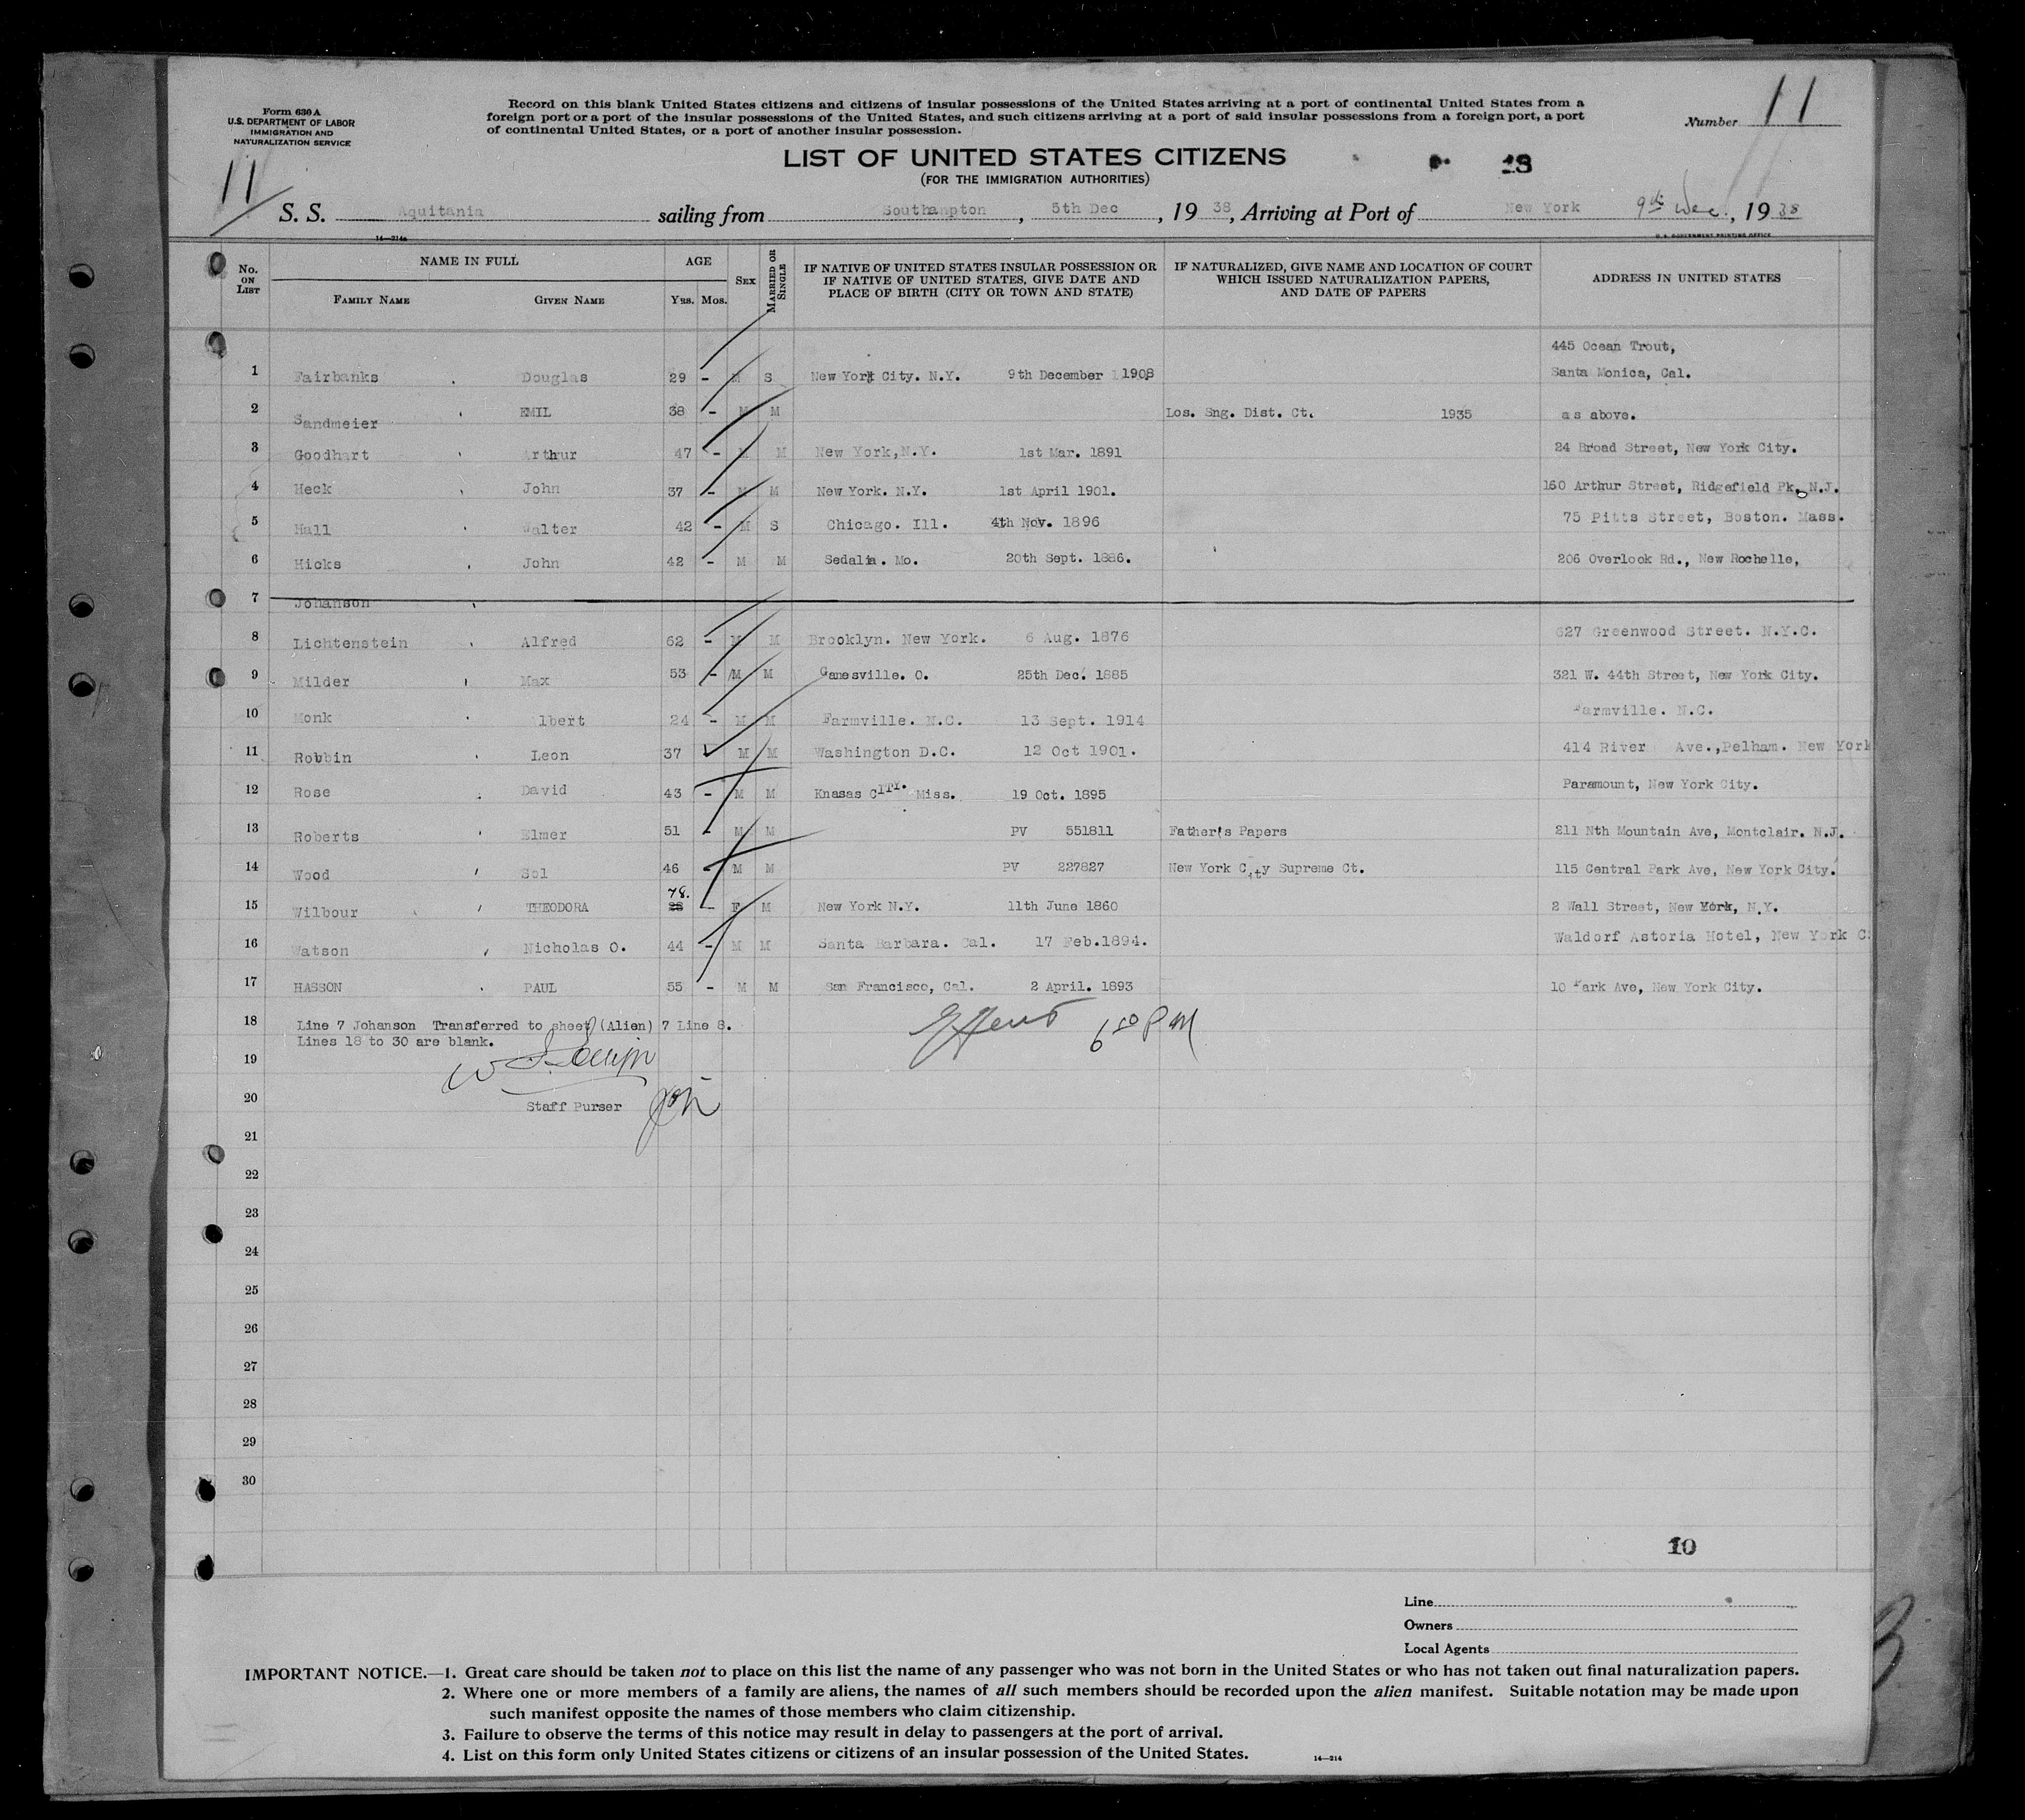 Form 630 A
U.S. DEPARTMENT OF LABOR
IMMIGRATION AND
NATURALIZATION SERVICE
Record on this blank United States citizens and citizens of insular possessions of the United States arriving at a port of continental United States from a
foreign port or a port of the insular possessions of the United States, and such citizens arriving at a port of said insular possessions from a foreign port, a port
of continental United States, or a port of another insular possession.
Number 11
11
LIST OF UNITED STATES CITIZENS
(FOR THE IMMIGRATION AUTHORITIES)
13
S. S. Aquitania sailing from Southampton, 5th Dec, 1938, Arriving at Port of New York 9th Dec., 1938
14—214a U.S. GOVERNMENT PRINTING OFFICE
No. ON LIST NAME IN FULL AGE SEX MARRIED OR SINGLE IF NATIVE OF UNITED STATES INSULAR POSSESSION OR IF NATIVE OF UNITED STATES, GIVE DATE AND PLACE OF BIRTH (CITY OR TOWN AND STATE) IF NATURALIZED, GIVE NAME AND LOCATION OF COURT WHICH ISSUED NATURALIZATION PAPERS, AND DATE OF PAPERS ADDRESS IN UNITED STATES
FAMILY NAME GIVEN NAME YRS. MOS.
445 Ocean Trout,
1 Fairbanks , Douglas 29 - M S New York City. N.Y. 9th December 1908 Santa Monica, Cal.
2 Sandmeier , EMIL 38 - M M Los. Sng. Dist. Ct. 1935 as above.
3 Goodhart , Arthur 47 - M M New York,N.Y. 1st Mar. 1891 24 Broad Street, New York City.
4 Heck , John 37 - M M New York. N.Y. 1st April 1901. 160 Arthur Street, Ridgefield Pk. N.J.
5 Hall , Walter 42 - M S Chicago. Ill. 4th Nov. 1896 75 Pitts Street, Boston. Mass.
6 Hicks , John 42 - M M Sedalia. Mo. 20th Sept. 1886. 206 Overlook Rd., New Rochelle,
7 Johanson ,
8 Lichtenstein , Alfred 62 - M M Brooklyn. New York. 6 Aug. 1876 627 Greenwood Street. N.Y.C.
9 Milder , Max 53 - M M Ganesville. O. 25th Dec. 1885 321 W. 44th Street, New York City.
10 Monk , lbert 24 - M M Farmville. N.C. 13 Sept. 1914 Farmville. N.C.
11 Robbin , Leon 37 M M Washington D.C. 12 Oct 1901. 414 River Ave.,Pelham. New York
12 Rose , David 43 - M M Knasas CITY. Miss. 19 Oct. 1895 Paramount, New York City.
13 Roberts , Elmer 51 - M M PV 551811 Father's Papers 211 Nth Mountain Ave, Montclair. N.J.
14 Wood , Sol 46 - M M PV 227827 New York City Supreme Ct. 115 Central Park Ave, New York City.
78.
15 Wilbour , THEODORA 28 - F M New York N.Y. 11th June 1860 2 Wall Street, New York, N.Y.
16 Watson , Nicholas O. 44 - M M Santa Barbara. Cal. 17 Feb.1894. Waldorf Astoria Hotel, New York C.
17 HASSON , PAUL 55 - M M San Francisco, Cal. 2 April. 1893 10 Park Ave, New York City.
18 Line 7 Johanson Transferred to sheet (Alien) 7 Line 8.
Lines 18 to 30 are blank.
6 50 PM
19
20 Staff Purser
21
22
23
24
25
26
27
28
29
30
10
Line
Owners
Local Agents
IMPORTANT NOTICE.—1. Great care should be taken not to place on this list the name of any passenger who was not born in the United States or who has not taken out final naturalization papers.
2. Where one or more members of a family are aliens, the names of all such members should be recorded upon the alien manifest. Suitable notation may be made upon
such manifest opposite the names of those members who claim citizenship.
3. Failure to observe the terms of this notice may result in delay to passengers at the port of arrival.
4. List on this form only United States citizens or citizens of an insular possession of the United States.
14—214